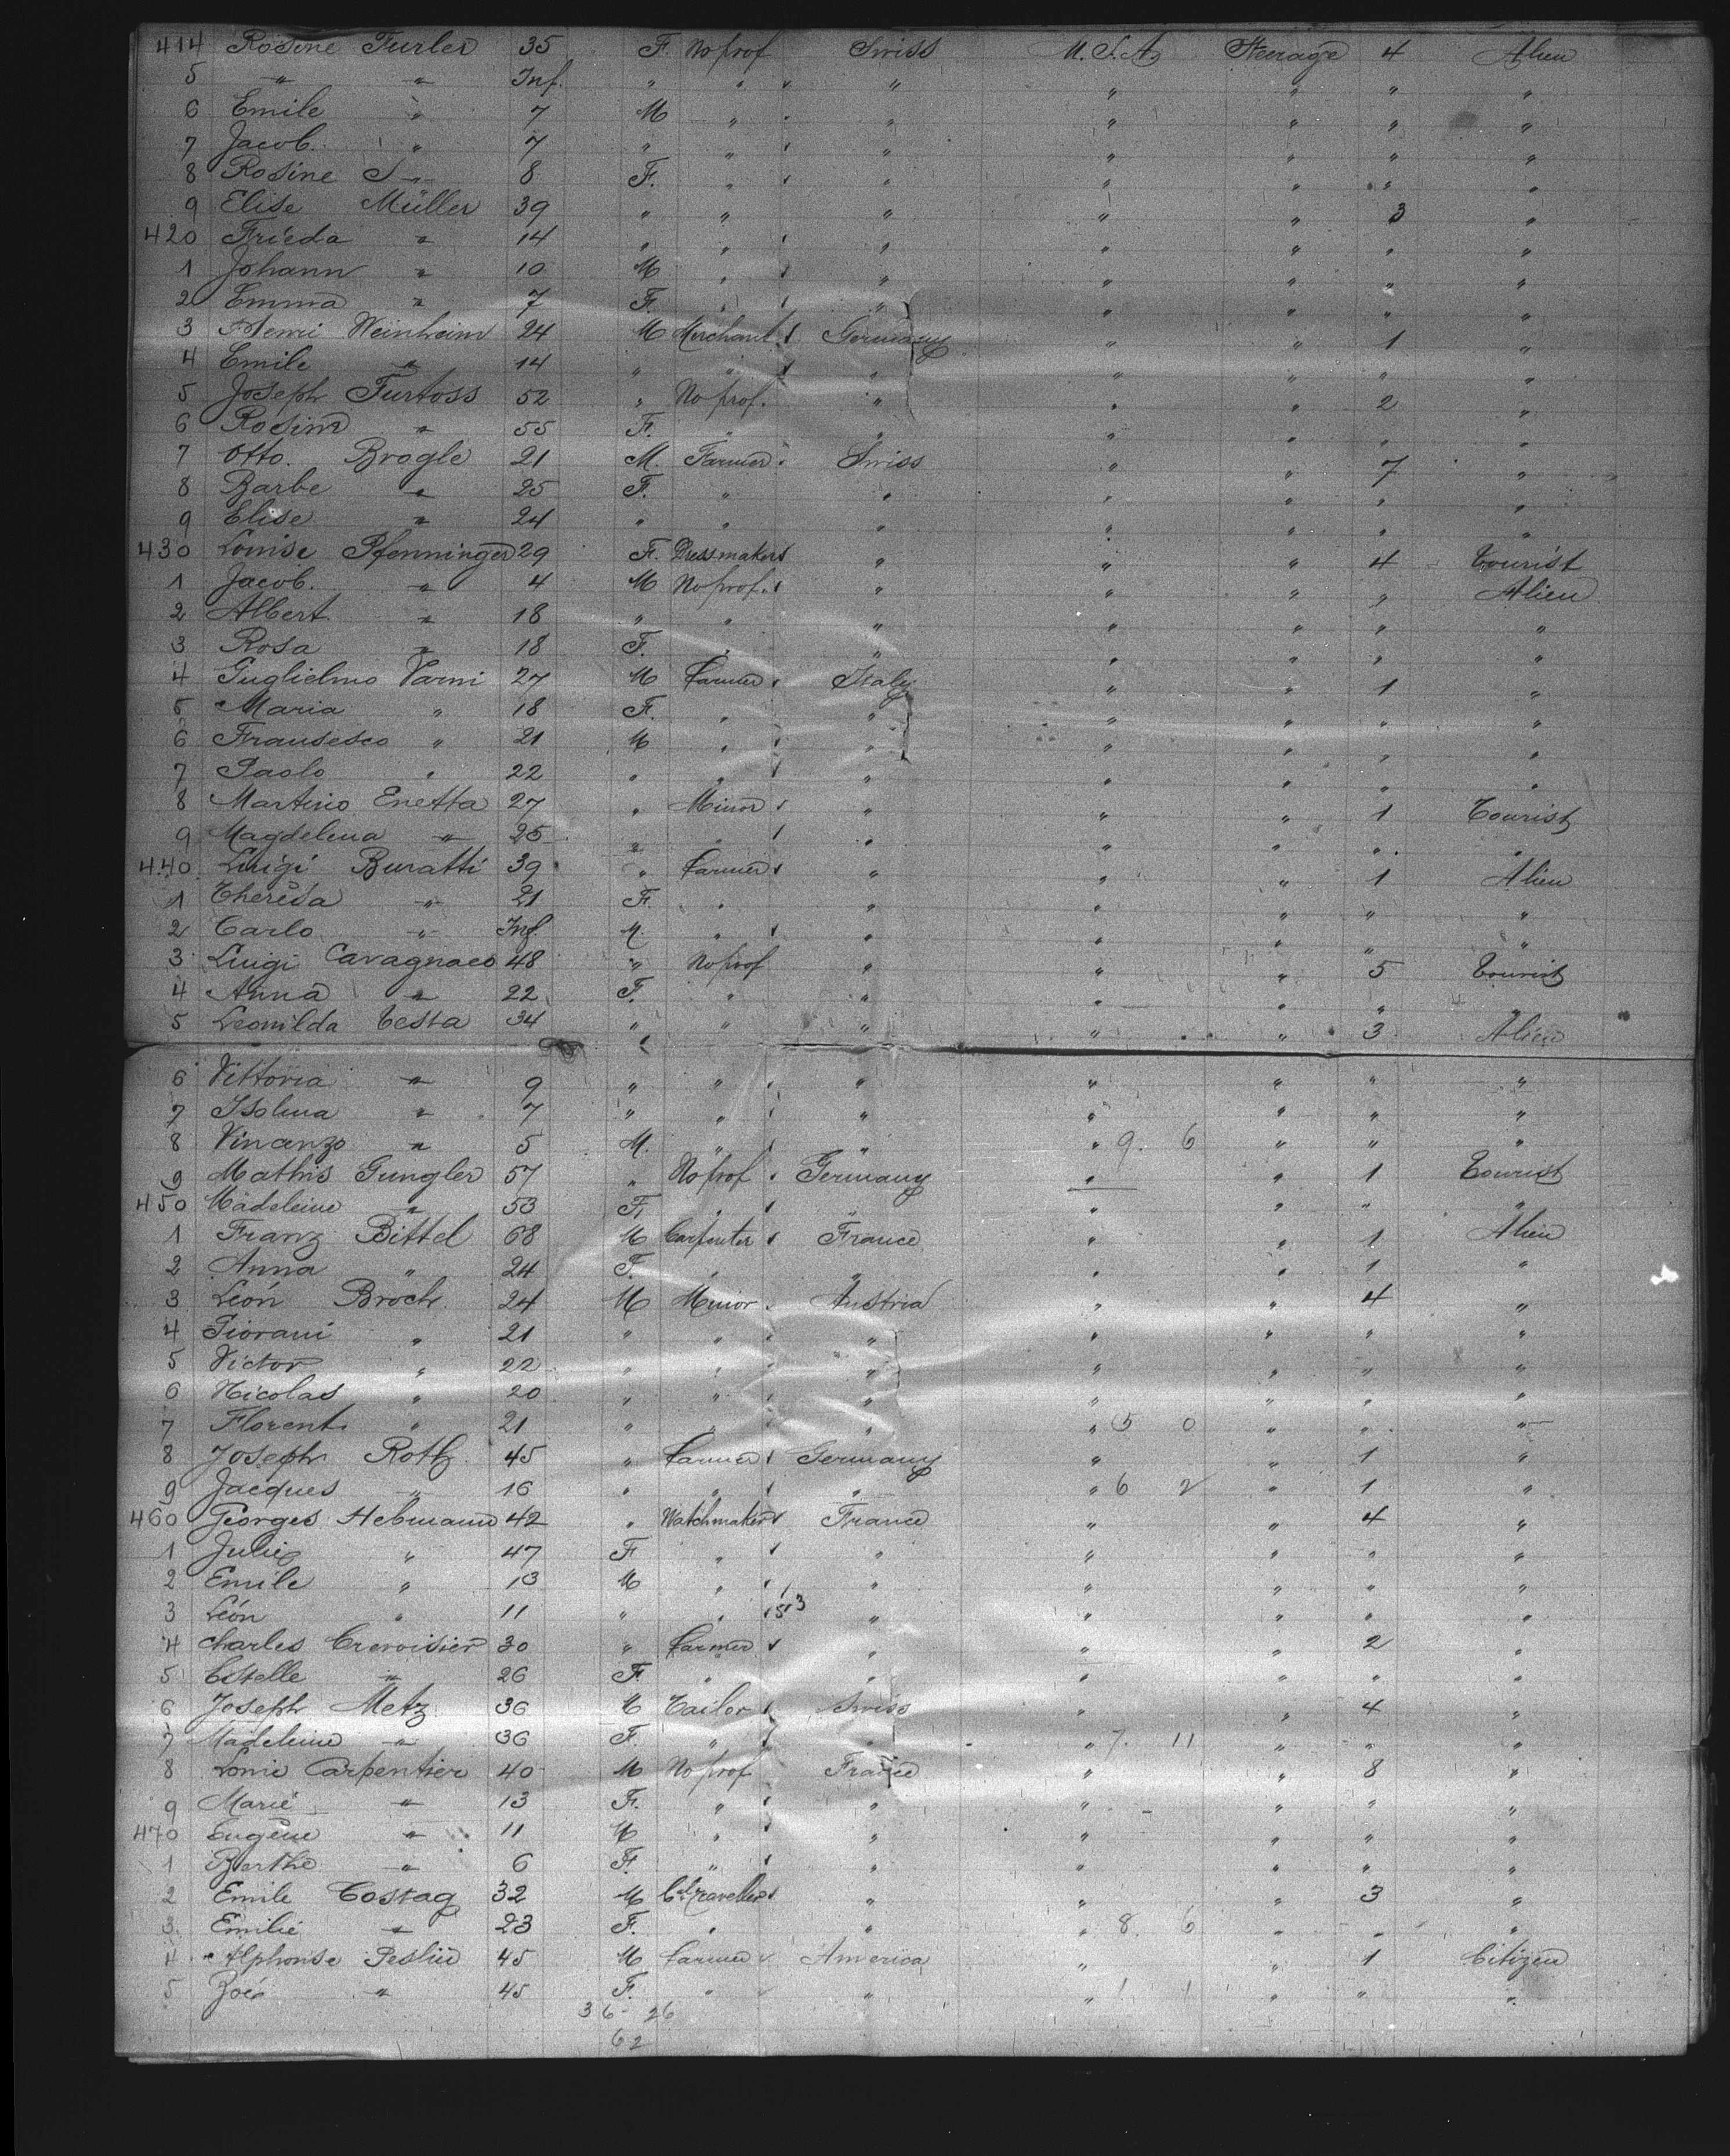 414 Rosine Furler 35 F. No prof Swiss U.S.A. Steerage 4 Alien
5 " " Inf. " " " " " " "
6 Emile " 7 M " " " " " "
7 Jacob. " 7 " " " " " " "
8 Rosine S " 8 F. " " " " " "
9 Elise Müller 39 " " " " " 3 "
420 Frieda " 14 " " " " " " "
1 Johann " 10 M " " " " " "
2 Emma " 7 F. " " " " " "
3 Henri Weinheim 24 M Merchant Germany " " 1 "
4 Emile " 14 " " " " " " "
5 Joseph Furtoss 52 " No prof. " " " 2 "
6 Rosine " 55 F. " " " " " "
7 Otto. Brogle 21 M. Farmer Swiss " " 7 "
8 Barbe " 25 F. " " " " " "
9 Elise " 24 " " " " " " "
430 Louise Pfenninger 29 F. Dressmaker " " " 4 Tourist
1 Jacob. " 4 M No prof. " " " " Alien
2 Albert " 18 " " " " " " "
3 Rosa " 18 F. " " " " " "
4 Guglielmo Varni 27 M Farmer Italy " " 1 "
5 Maria " 18 F. " " " " " "
6 Fransesco " 21 M " " " " " "
7 Paolo " 22 " " " " " " "
8 Martino Enetta 27 " Minor " " " 1 Tourist
9 Magdelena " 25 " " " " " " "
440 Luigi Buratti 39 " Farmer " " " 1 Alien
1 Theresa " 21 F. " " " " " "
2 Carlo " Inf. M. " " " " " "
3 Luigi Cavagnaco 48 " No prof " " " 5 Tourist
4 Anna " 22 F. " " " " " "
5 Leonilda Testa 34 " " " " " 3 Alien
6 Vittoria " 9 " " " " " " "
7 Isolina " 7 " " " " " " "
8 Vincenzo " 5 M. " " " 9. 6 " " "
9 Mathis Gungler 57 " No prof Germany " " 1 Tourist
450 Madeleine " 53 F. " " " " " "
1 Franz Bittel 68 M Carpenter France " " 1 Alien
2 Anna " 24 F. " " " " 1 "
3 Léon Broch 24 M Minor Austria " " 4 "
4 Giorani " 21 " " " " " " "
5 Victor " 22 " " " " " " "
6 Nicolas " 20 " " " " " " "
7 Florent " 21 " " " " 5 0 " " "
8 Joseph Roth 45 " Farmer Germany " " 1 "
9 Jacques " 16 " " " " 6 2 " 1 "
460 Georges Hebmann 42 " Watchmaker France " " 4 "
1 Julie " 47 F " " " " " "
2 Emile " 13 M " " " " " "
3 Léon " 11 " " " " " " "
4 Charles Crevoisier 30 " Farmer " " " 2 "
5 Estelle " 26 F. " " " " " "
6 Joseph Metz 36 M Tailor Swiss " " 4 "
7 Madeleine " 36 F. " " " 7. 11 " " "
8 Louis Carpentier 40 M No prof France " " 8 "
9 Marie " 13 F. " " " " " "
470 Eugène " 11 M " " " " " "
1 Berthe " 6 F. " " " " " "
2 Emile Costag 32 M Cl Traveller " " " 3 "
3 Emilie " 23 F. " " " 8. 6 " " "
4 Alphonse Peslin 45 M Farmer America " " 1 Citizen
5 Zoé " 45 F. " " " 1 1 " " "
36 - 26
62